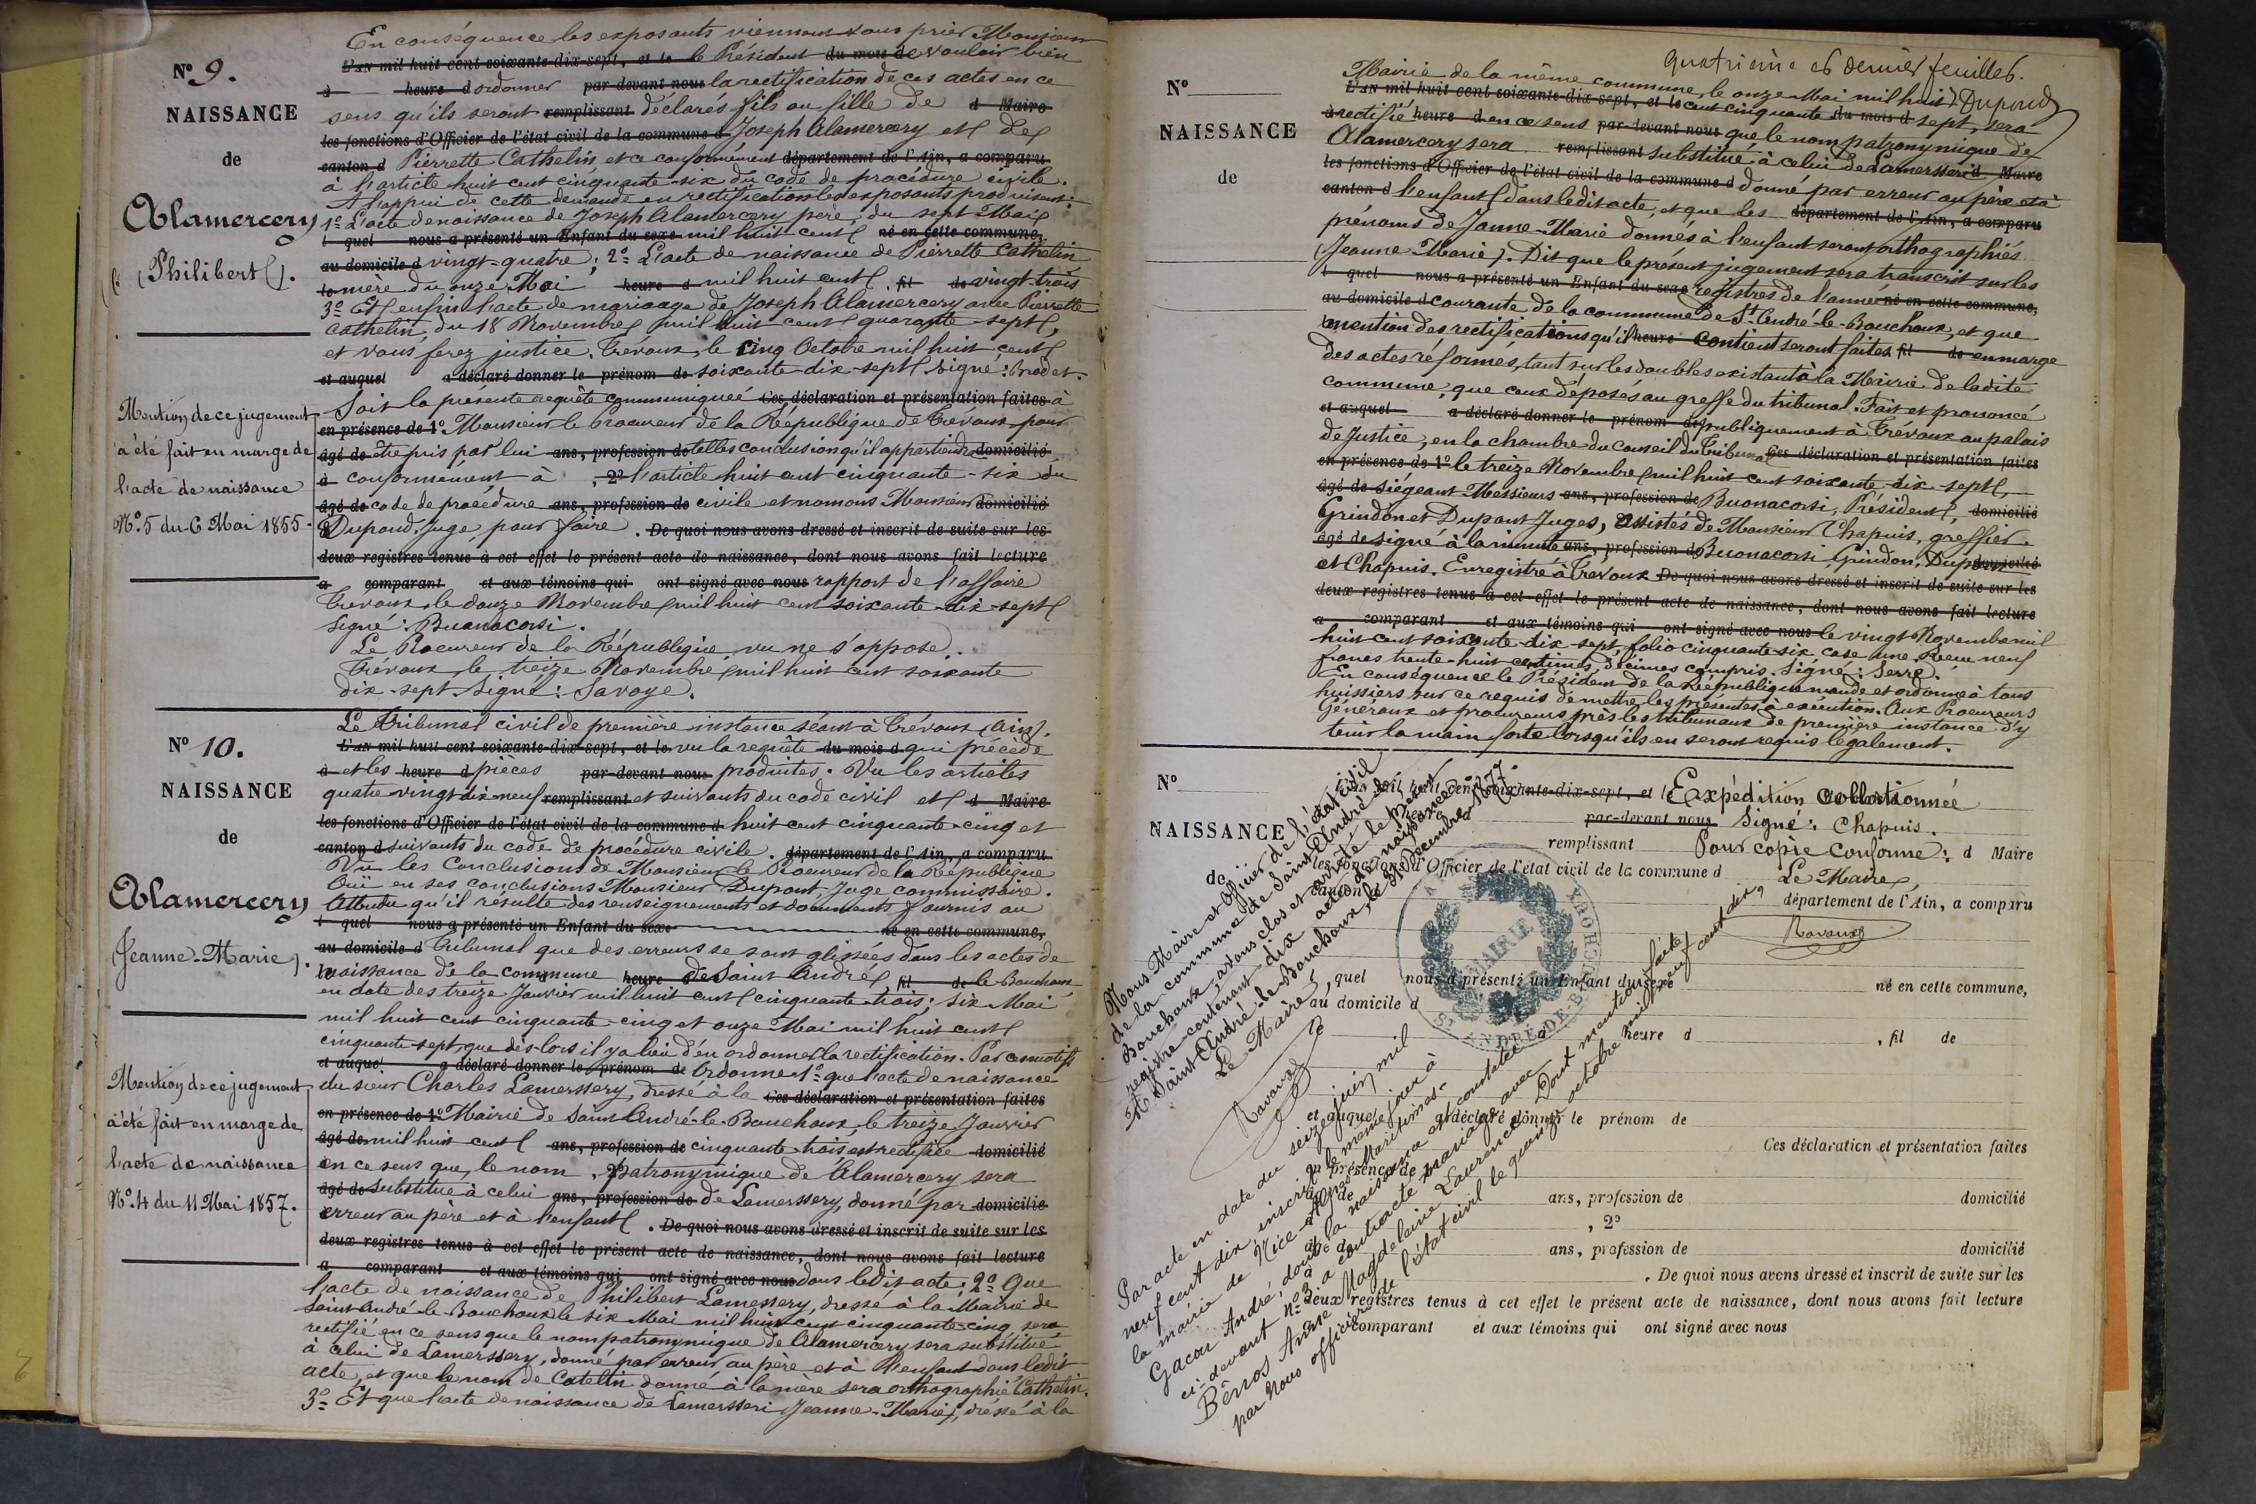 En conséquence les exposants viennent vous prier Monsieur
L'AN mil huit cent soixante-dix-sept, et le le Président du mois de vouloir bien
à heure d ordonner par-devant nous la rectification de ces actes en ce
sens qu'ils seront remplissant déclarés fils ou fille de d Maire
les fonctions d'Officier de l'état civil de la commune d Joseph Alamercery et de
canton d Pierrette Cathelin et ce conformément département de l'Ain, a comparu
à l'article huit cent cinquante-six du code de procédure civile.
A l'appui de cette demande en rectification les exposants produisent:
1º L'acte de naissance de Joseph Alamercery père, du sept Mai
l quel nous a présenté un Enfant du sexe mil huit cent né en cette commune,
au domicile d vingt-quatre; 2º L'acte de naissance de Pierrette Cathelin
le mère du onze Mai heure d mil huit cent , fil de vingt-trois
3º Et enfin l'acte de mariage de Joseph Alamercery avec Pierrette
Cathelin, du 18 Novembre mil huit cent quarante-sept,
et vous ferez justice. Trévoux, le cinq Octobre mil huit cent
et auquel a déclaré donner le prénom de soixante-dix-sept signé: Brodet.
Soit la présente requête communiquée Ces déclaration et présentation faites à
en présence de 1º Monsieur le Procureur de la République de Trévoux pour
âgé de être pris par lui ans, profession de telles conclusion qu'il appartiendra domicilié
à conformément à , 2º l'article huit cent cinquante-six du
âgé de code de procédure ans, profession de civile et nomons Monsieur domicilié
à Dupond, Juge, pour faire . De quoi nous avons dressé et inscrit de suite sur les
deux registres tenus à cet effet le présent acte de naissance, dont nous avons fait lecture
a comparant et aux témoins qui ont signé avec nous rapport de l'affaire
Trévoux, le douze Novembre mil huit cent soixante-dix-sept
signé: Buonacorsi.
Le Procureur de la République vu ne s'oppose.
Trévoux, le treize Novembre mil huit cent soixante
dix-sept signé: Savoye.
Nº 9.
NAISSANCE
de
Alamercery
(Philibert).
Mention de ce jugement
à été fait en marge de
l'acte de naissance
Nº 5 du 6 Mai 1855.
Nº 10.
NAISSANCE
de
Alamercery
(Jeanne-Marie).
Mention de ce jugement
à été fait en marge de
l'acte de naissance
Nº 4 du 11 Mai 1857.
Le Tribunal civil de première instance séant à Trévoux (Ain).
L'AN mil huit cent soixante-dix-sept, et le vu la requête du mois d qui précède
à et les heure d pièces par-devant nous produites. Vu les articles
quatre vingt dix neuf remplissant et suivants du code civil et d Maire
les fonctions d'Officier de l'état civil de la commune d huit cent cinquante-cinq et
canton d suivants du code de procédure civile. département de l'Ain, a comparu
Vu les Conclusions de Monsieur le Procureur de la République
Ouï en ses conclusions Monsieur Dupont Juge commissaire.
Attendu qu'il résulte des renseignements et documents fournis au
l quel nous a présenté un Enfant du sexe né en cette commune,
au domicile d Tribunal que des erreurs se sont glissées dans les actes de
naissance de la commune heure de Saint André , fil de le Bouchoux
en date des treize Janvier mil huit cent cinquante trois; six Mai
mil huit cent cinquante-cinq et onze Mai mil huit cent
cinquante-sept, que dès-lors il y a lieu d'en ordonner la rectification. Par ces motifs
et auquel a déclaré donner le prénom de Ordonne 1º que l'acte de naissance
du sieur Charles Lamerssery, dressé à la Ces déclaration et présentation faites
en présence de 1º Mairie de Saint André-le-Bouchoux le treize Janvier
âgé de mil huit cent ans, profession de cinquante-trois est rectifiée domicilié
en ce sens que le nom , 2º patronymique de Alamercery sera
âgé de substitué à celui ans, profession de de Lamerssery, donné par domicilié
erreur au père et à l'enfant . De quoi nous avons dressé et inscrit de suite sur les
deux registres tenus à cet effet le présent acte de naissance, dont nous avons fait lecture
a comparant et aux témoins qui ont signé avec nous dans ledit acte; 2º Que
l'acte de naissance de Philibert Lamerssery, dressé à la Mairie de
Saint André-le-Bouchoux le six Mai mil huit cent cinquante-cinq sera
rectifié en ce sens que le nom patronymique de Alamercery sera substitué
à celui de Lamerssery, donné par erreur au père et à l'enfant dans ledit
acte, et que le nom de Catellin donné à la mère sera orthographié Cathelin.
3º Et que l'acte de naissance de Lamersseri (Jeanne-Marie), dressé à la
quatrième et dernier feuillet.
Dupond
Nº
NAISSANCE
de
Mairie de la même commune, le onze Mai mil huit
L'AN mil huit cent soixante-dix-sept, et le cent cinquante du mois d sept, sera
à rectifié heure d en ce sens par-devant nous que le nom patronymique de
Alamercery sera remplissant substitué à celui de Lamersseri d Maire
les fonctions d'Officier de l'état civil de la commune d donné par erreur au père et à
canton d l'enfant dans ledit acte, et que les département de l'Ain, a comparu
prénoms de Janne-Marie donnés à l'enfant seront orthographiés
(Jeanne Marie). Dit que le présent jugement sera transcrit sur les
l quel nous a présenté un Enfant du sexe registres de l'année né en cette commune,
au domicile d courante de la commune de St André-le-Bouchoux, et que
mention des rectifications qu'il heure contient seront faites fil de en marge
des actes réformés, tant sur les doubles existant à la Mairie de ladite
commune, que ceux déposés au greffe du tribunal. Fait et prononcé
et auquel a déclaré donner le prénom de publiquement à Trévoux au palais
de Justice, en la chambre du Conseil du Tribunal Ces déclaration et présentation faites
en présence de 1º le treize Novembre mil huit cent soixante-dix-sept,
âgé de siégeant Messieurs ans, profession de Buonacorsi, Président, domicilié
Grindon et Dupont Juges, assistés de Monsieur Chapuis, greffier.
âgé de signé à la minute ans, profession de Buonacorsi, Grindon, Dupont domicilié
et Chapuis. Enregistré à Trévoux De quoi nous avons dressé et inscrit de suite sur les
deux registres tenus à cet effet le présent acte de naissance, dont nous avons fait lecture
a comparant et aux témoins qui ont signé avec nous le vingt Novembre mil
huit cent soixante-dix-sept, folio cinquante-six, case une. Reçu neuf
francs trente-huit centimes, décimes compris. Signé: Serre.
En conséquence le Président de la République mande et ordonne à tous
huissiers sur ce requis de mettre les présentes à exécution. Aux Procureurs
Généraux et procureurs près les tribunaux de première instance d'y
tenir la main forte lorsqu'ils en seront requis légalement.
Nº
NAISSANCE
de
L'AN mil huit cent soixante-dix-sept, et l Expédition collationnée
par-devant nous Signé: Chapuis.
remplissant Pour copie conforme: d Maire
les fonctions d'Officier de l'état civil de la commune d Le Maire,
canton d département de l'Ain, a comparu
Ravoux
l quel nous a présenté un Enfant du sexe né en cette commune,
au domicile d
heure d , fil de
et auquel a déclaré donner le prénom de
Ces déclaration et présentation faites
en présence de 1º
âgé de ans, profession de domicilié
à , 2º
âgé de ans, profession de domicilié
à . De quoi nous avons dressé et inscrit de suite sur les
deux registres tenus à cet effet le présent acte de naissance, dont nous avons fait lecture
a comparant et aux témoins qui ont signé avec nous
Nous Maire et Officier de l'état civil
de la commune de Saint André-le-
Bouchoux, avons clos et arrêté le présent
registre contenant dix actes de naissance.
A Saint André-le-Bouchoux, le 31 Décembre 1877.
Le Maire,
Ravoux
MAIRIE
ST ANDRÉ-DE-BOUCHOUX
Par acte en date du seize juin mil
neuf cent dix, inscrit le même jour à
la mairie de Nice-Alpes-Maritimes-
Gacon André, dont la naissance est constatée
ci-devant nº 3 a contracté mariage avec
Bérros Anne Magdeleine Laurence. Dont mention faite
par nous officier de l'état civil le quinze octobre mil neuf cent dix,